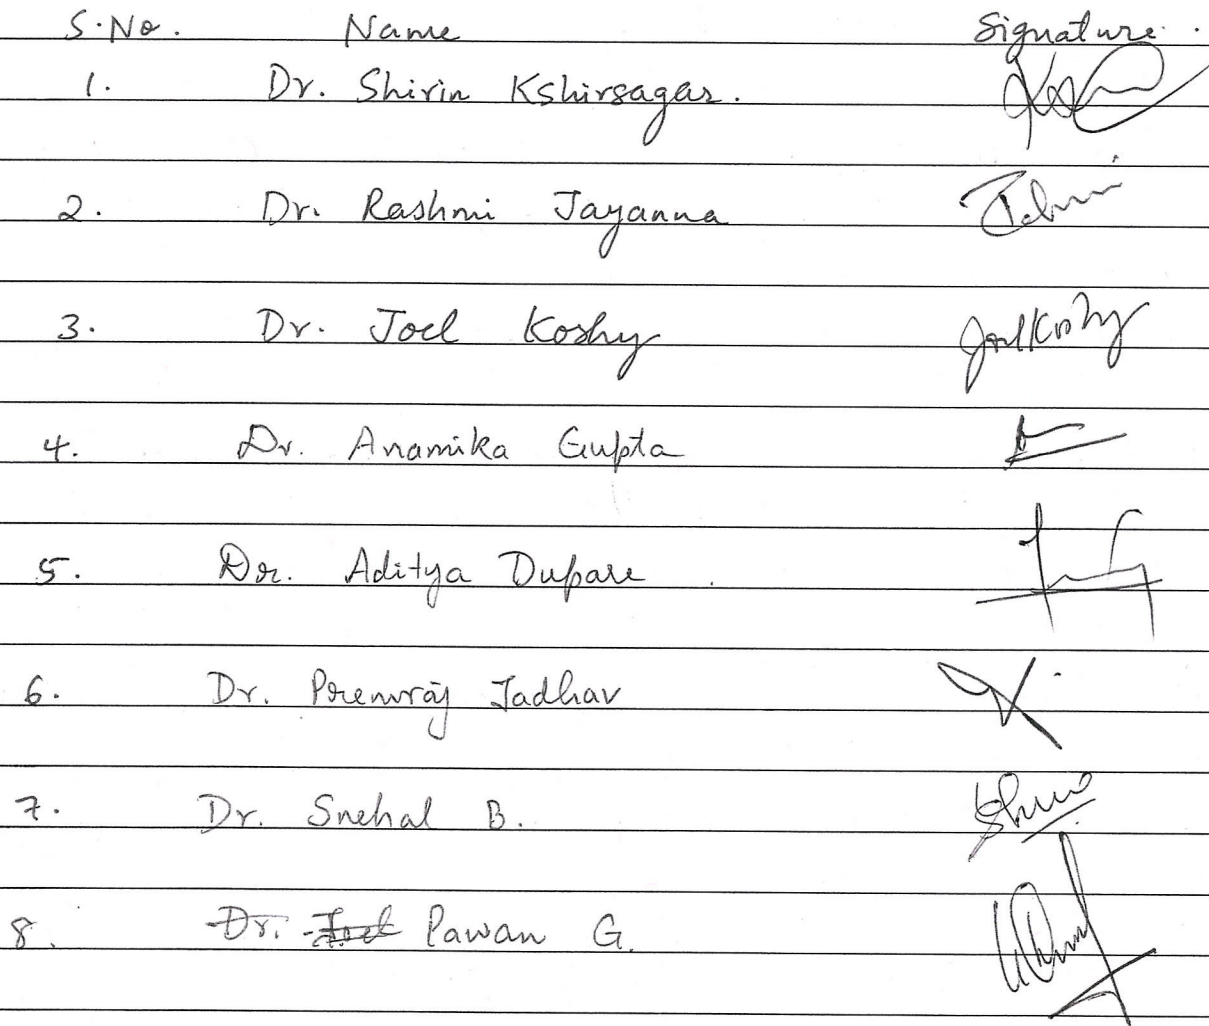 S.No. Name Signature
1. Dr. Shirin Kshirsagar.
2. Dr. Rashmi Jayanna
3. Dr. Joel Koshy Joel Koshy
4. Dr. Anamika Gupta
5. Dr. Aditya Dupare
6. Dr. Premraj Jadhav
7. Dr. Snehal B.
8. Dr. Joel Pawan G.